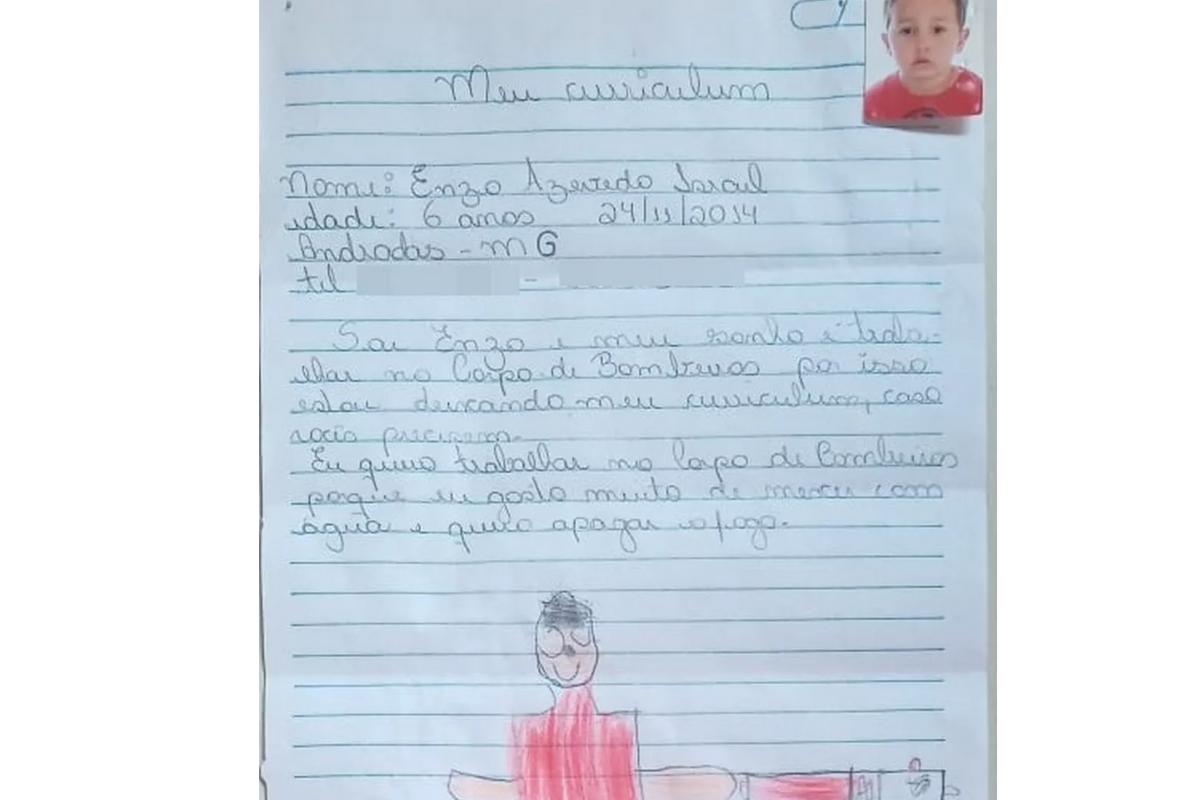 Meu curriculum
Nome: Enzo Azevedo Israel
idade: 6 anos 24/11/2014
Andradas - MG
tel -
Sou Enzo e meu sonho é traba-
lhar no Corpo de Bombeiros por isso
estou deixando meu curriculum, caso
vocês precisem.
Eu quero trabalhar no Corpo de Bombeiros
porque eu gosto muito de mexer com
água e quero apagar o fogo.